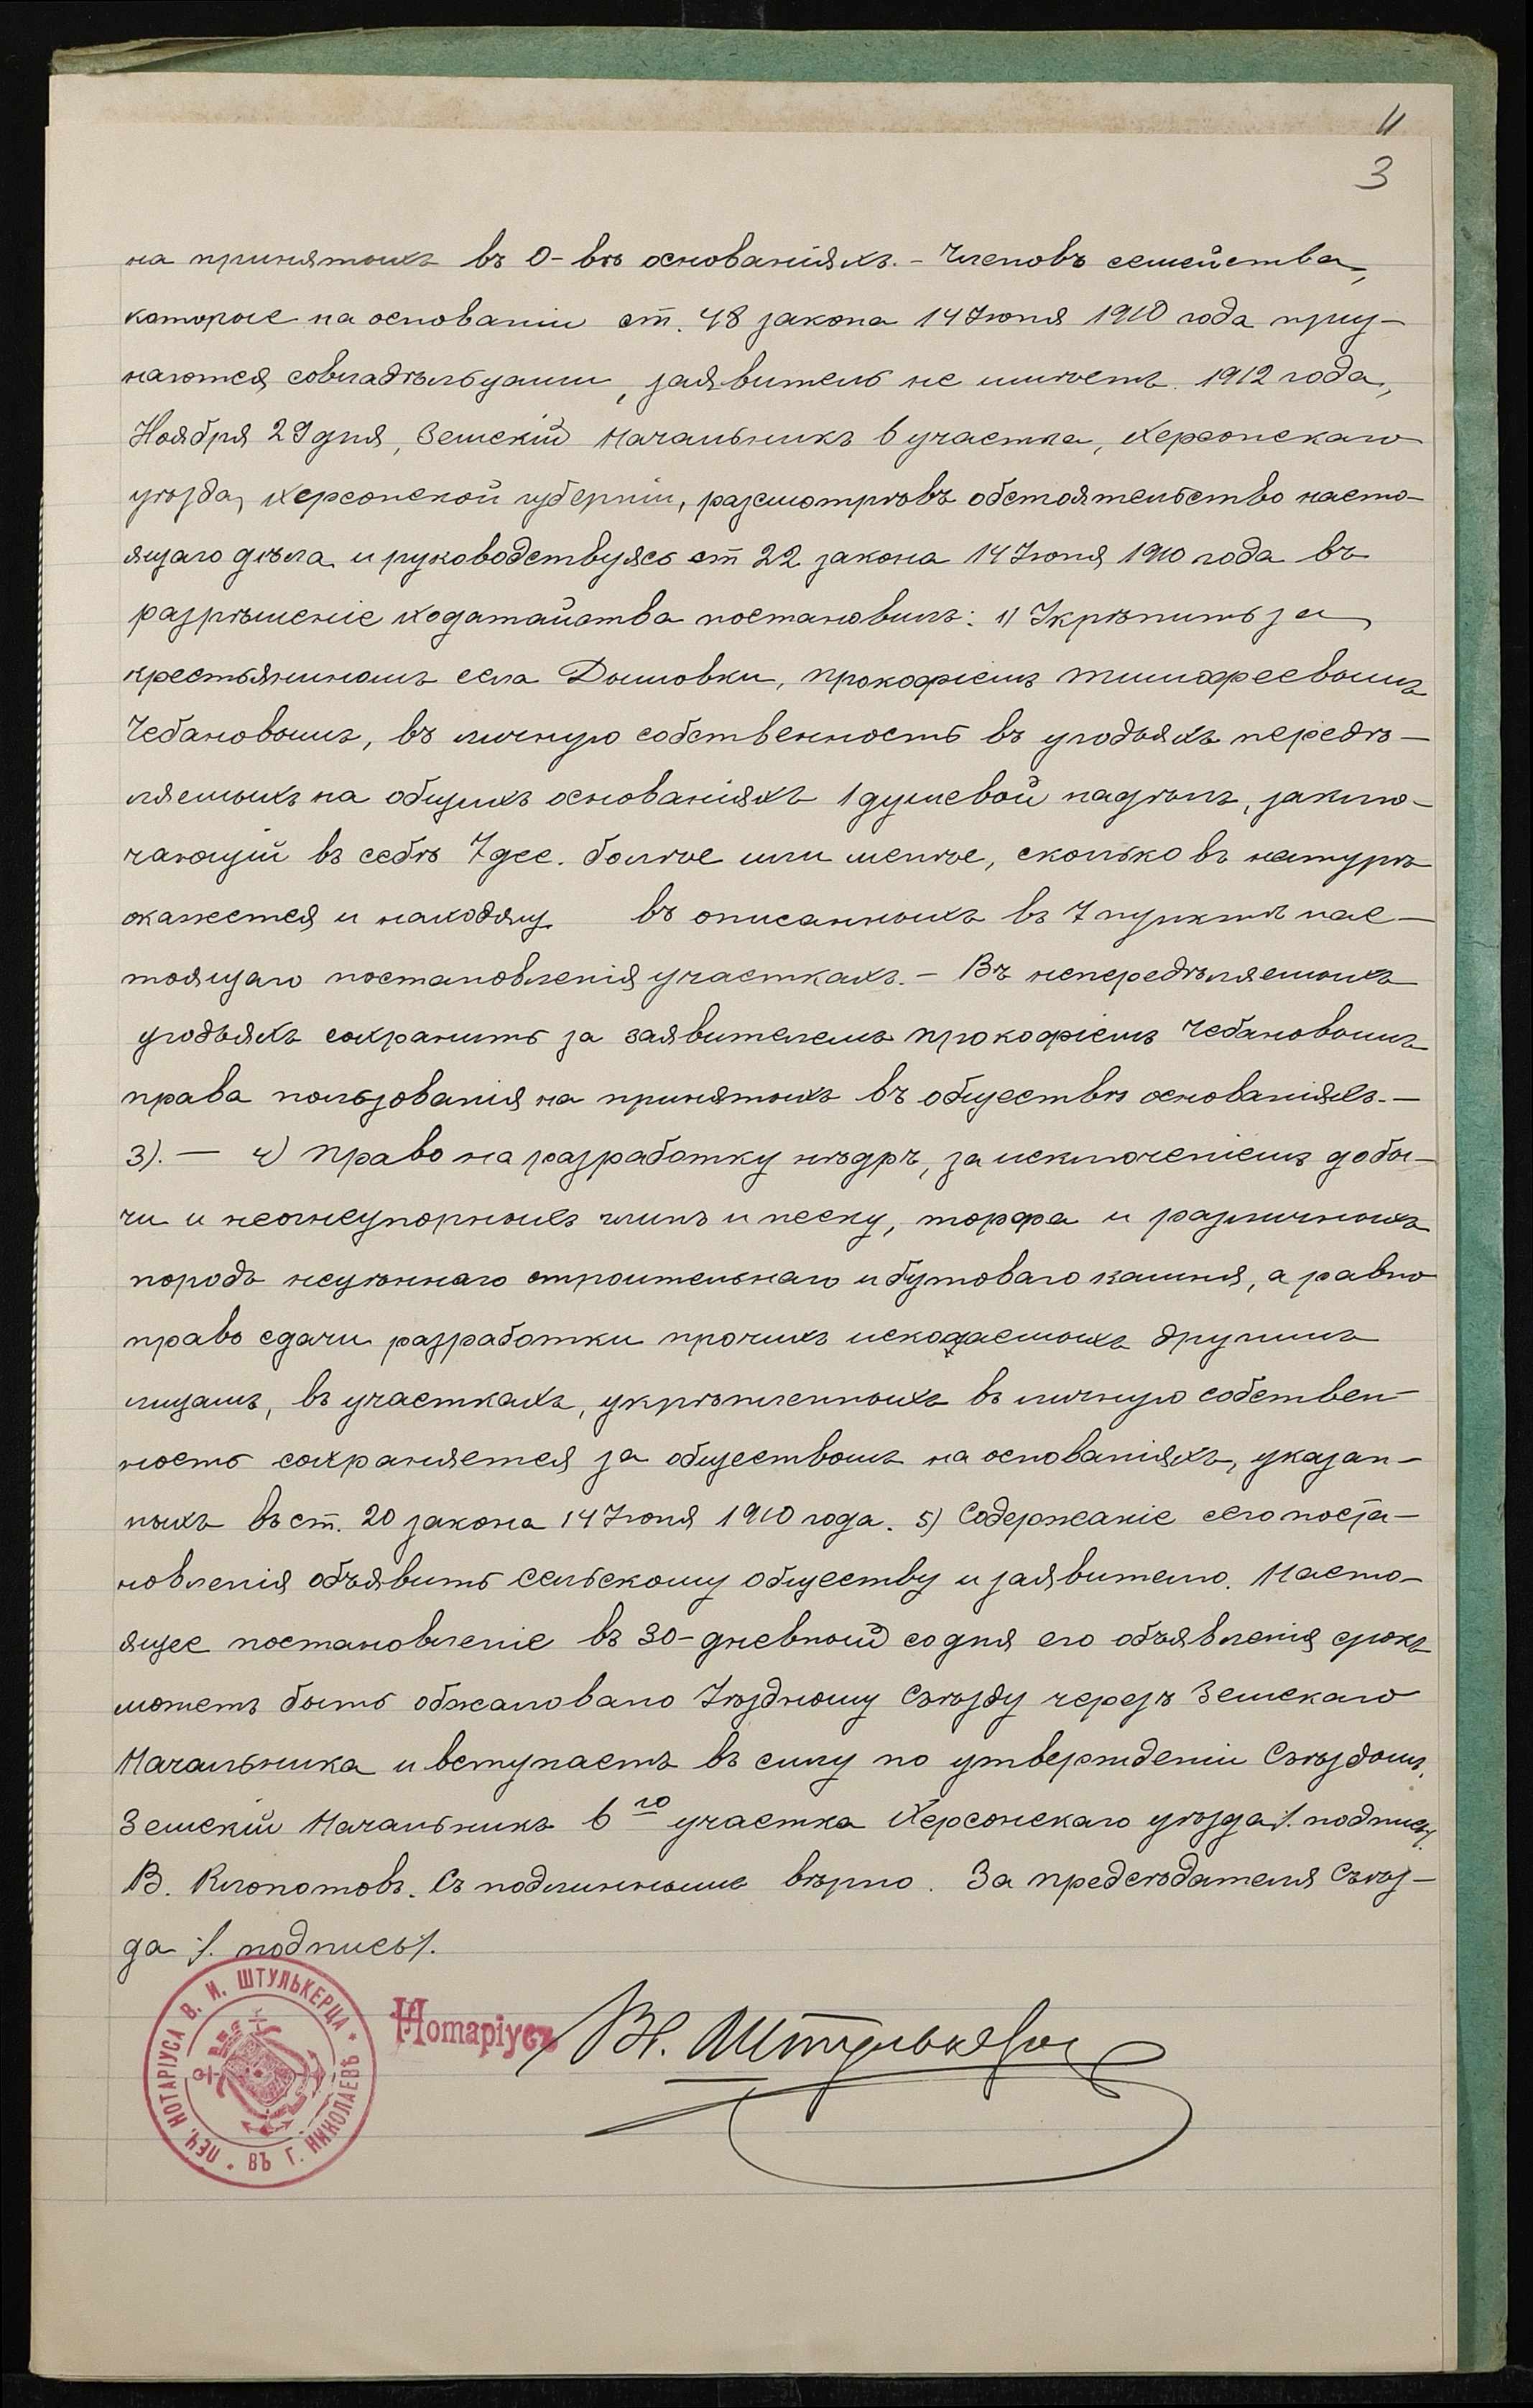 11
3
на принятыхъ въ О-вѣ основаніяхъ. - Членовъ семейства,
которые на основаніи ст. 48 закона 14 Іюня 1910 года приз-
наются совладѣльцами, заявитель не имѣетъ. 1912 года,
Ноября 29 дня, Земскій Начальникъ 6 участка, Херсонскаго
уѣзда, Херсонской губерніи, разсмотрѣвъ обстоятельство насто-
ящаго дѣла и руководствуясь ст 22 закона 14 Іюня 1910 года въ
разрѣшеніе ходатайства постановилъ: 1) Укрѣпить за
крестьяниномъ села Дымовки, Прокофіемъ Тимофеевымъ
Чебановымъ, въ личную собственность въ угодьяхъ передѣ-
ляемыхъ на общихъ основаніяхъ 1 душевой надѣлъ, заклю-
чающій въ себѣ 7 дес. болѣе или менѣе, сколько въ натурѣ
окажется и находящ. въ описанныхъ въ 7 пунктѣ нас-
тоящаго постановленія участкахъ. - Въ непередѣляемыхъ
угодьяхъ сохранить за заявителемъ Прокофіемъ Чебановымъ
права пользованія на принятыхъ въ обществѣ основаніяхъ. -
3). - 4) Право на разработку нѣдръ, за исключеніемъ добы-
чи и неогнеупорныхъ глинъ и песку, торфа и различныхъ
породъ неценнаго строительнаго и бутоваго камня, а равно
право сдачи разработки прочихъ ископаемыхъ другимъ
лицамъ, въ участкахъ, укрѣпленныхъ въ личную собствен-
ность сохраняется за обществомъ на основаніяхъ, указан-
ныхъ въ ст. 20 закона 14 Іюня 1910 года. 5) Содержаніе сего поста-
новленія объявить сельскому обществу и заявителю. Насто-
ящее постановленіе въ 30-дневный со дня его объявленія срокъ
можетъ быть обжаловано Уѣздному Съѣзду черезъ Земскаго
Начальника и вступаетъ въ силу по утвержденіи Съѣздомъ.
Земскій Начальникъ 6го участка Херсонскаго уѣзда /. подпись/.
В. Клопотовъ. Съ подлиннымъ вѣрно. За предсѣдателя Съѣз-
да /. подпись/.
ПЕЧ. НОТАРІУСА В. И. ШТУЛЬКЕРЦА * ВЪ Г. НИКОЛАЕВѢ *
Нотаріусъ В. Штулькерц